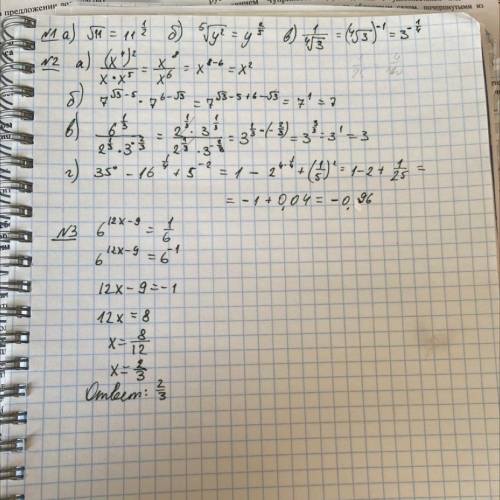 №1 а) √11 = 11^(1/2) б) ⁵√y² = y^(2/5) в) 1/⁴√3 = (⁴√3)^(-1) = 3^(-1/4)
№2 а) (x⁴)²/(x·x⁵) = x⁸/x⁶ = x^(8-6) = x²
б) 7^(√3-5) · 7^(6-√3) = 7^(√3-5+6-√3) = 7¹ = 7
в) 6^(1/3)/(2^(1/3)·3^(-2/3)) = 2^(1/3)·3^(1/3)/(2^(1/3)·3^(-2/3)) = 3^(1/3-(-2/3)) = 3^(3/3) = 3¹ = 3
г) 35° - 16^(1/4) + 5^(-2) = 1 - 2^(4·1/4) + (1/5)² = 1-2+1/25 =
= -1+0,04 = -0,96
№3 6^(12x-9) = 1/6
6^(12x-9) = 6^(-1)
12x-9=-1
12x=8
x=8/12
x=2/3
Ответ: 2/3